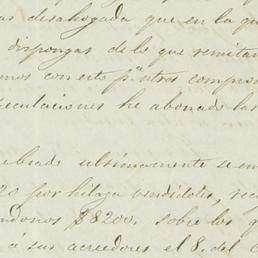 as desahogada que en la qu
dispongas de lo que remitan
mos con esto pª ntros compro
eculaciones he abonado las
ebrado ultimamente se em
20 por hilaza vendidoles, rec
ndonos $8200. sobre los q
á sus acreedores el 8. del